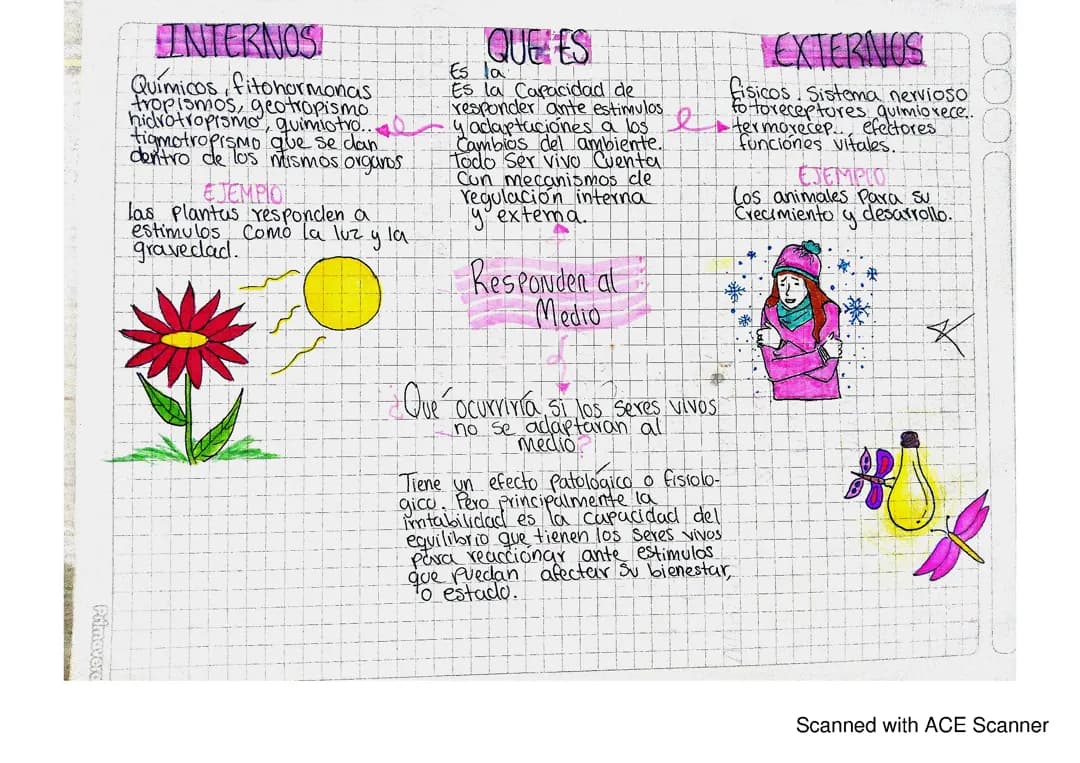 INTERNOS
Químicos, fitohormonas
tropismos, geotropismo
hidrotropismo, quimiotro...
tigmotropismo que se dan
dentro de los mismos organos
EJEMPlO
las Plantas responden a
estimulos como la luz y la
gravedad.
QUE ES
Es la
Es la Capacidad de
responder ante estimulos
y adaptaciónes a los
Cambios del ambiente.
Todo Ser vivo Cuenta
Con mecanismos de
regulación interna
y externa.
EXTERNOS
físicos, Sistema nervioso
fotoreceptores, quimiorece..
termorecep.., efectores
funciónes vitales.
EJEMPlO
Los animales Para su
Crecimiento y desarrollo.
Responden al
Medio
¿Qué ocurriría si los Seres vivos
no se adaptaran al
medio?
Tiene un efecto Patológico o fisiolo-
gico. Pero principalmente la
irritabilidad es la capacidad del
equilibrio que tienen los seres vivos
para reaccionar ante estimulos
que Puedan afectar Su bienestar,
o estado.
Primavera
Scanned with ACE Scanner